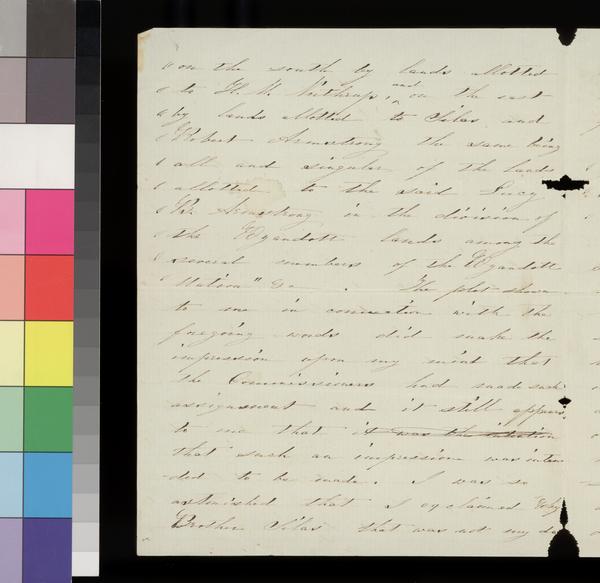 " on the south by lands allotted
" to H. M. Northrup, and on the east
" by lands allotted to Silas and
" Robert Armstrong the same being
" all and singular of the lands
" allotted to the said Lucy
" B. Armstrong in the division of
" the Wyandott lands among the
" several members of the Wyandott
" Nation" &c. The plat shown
to me in connection with the
foregoing words did make the
impression upon my mind that
the Commissioners had made such
assignment and it still appears
to me that it was the intention
that such an impression was inten
ded to be made. I was so
astonished that I exclaimed "Why
Brother Silas that was not my de